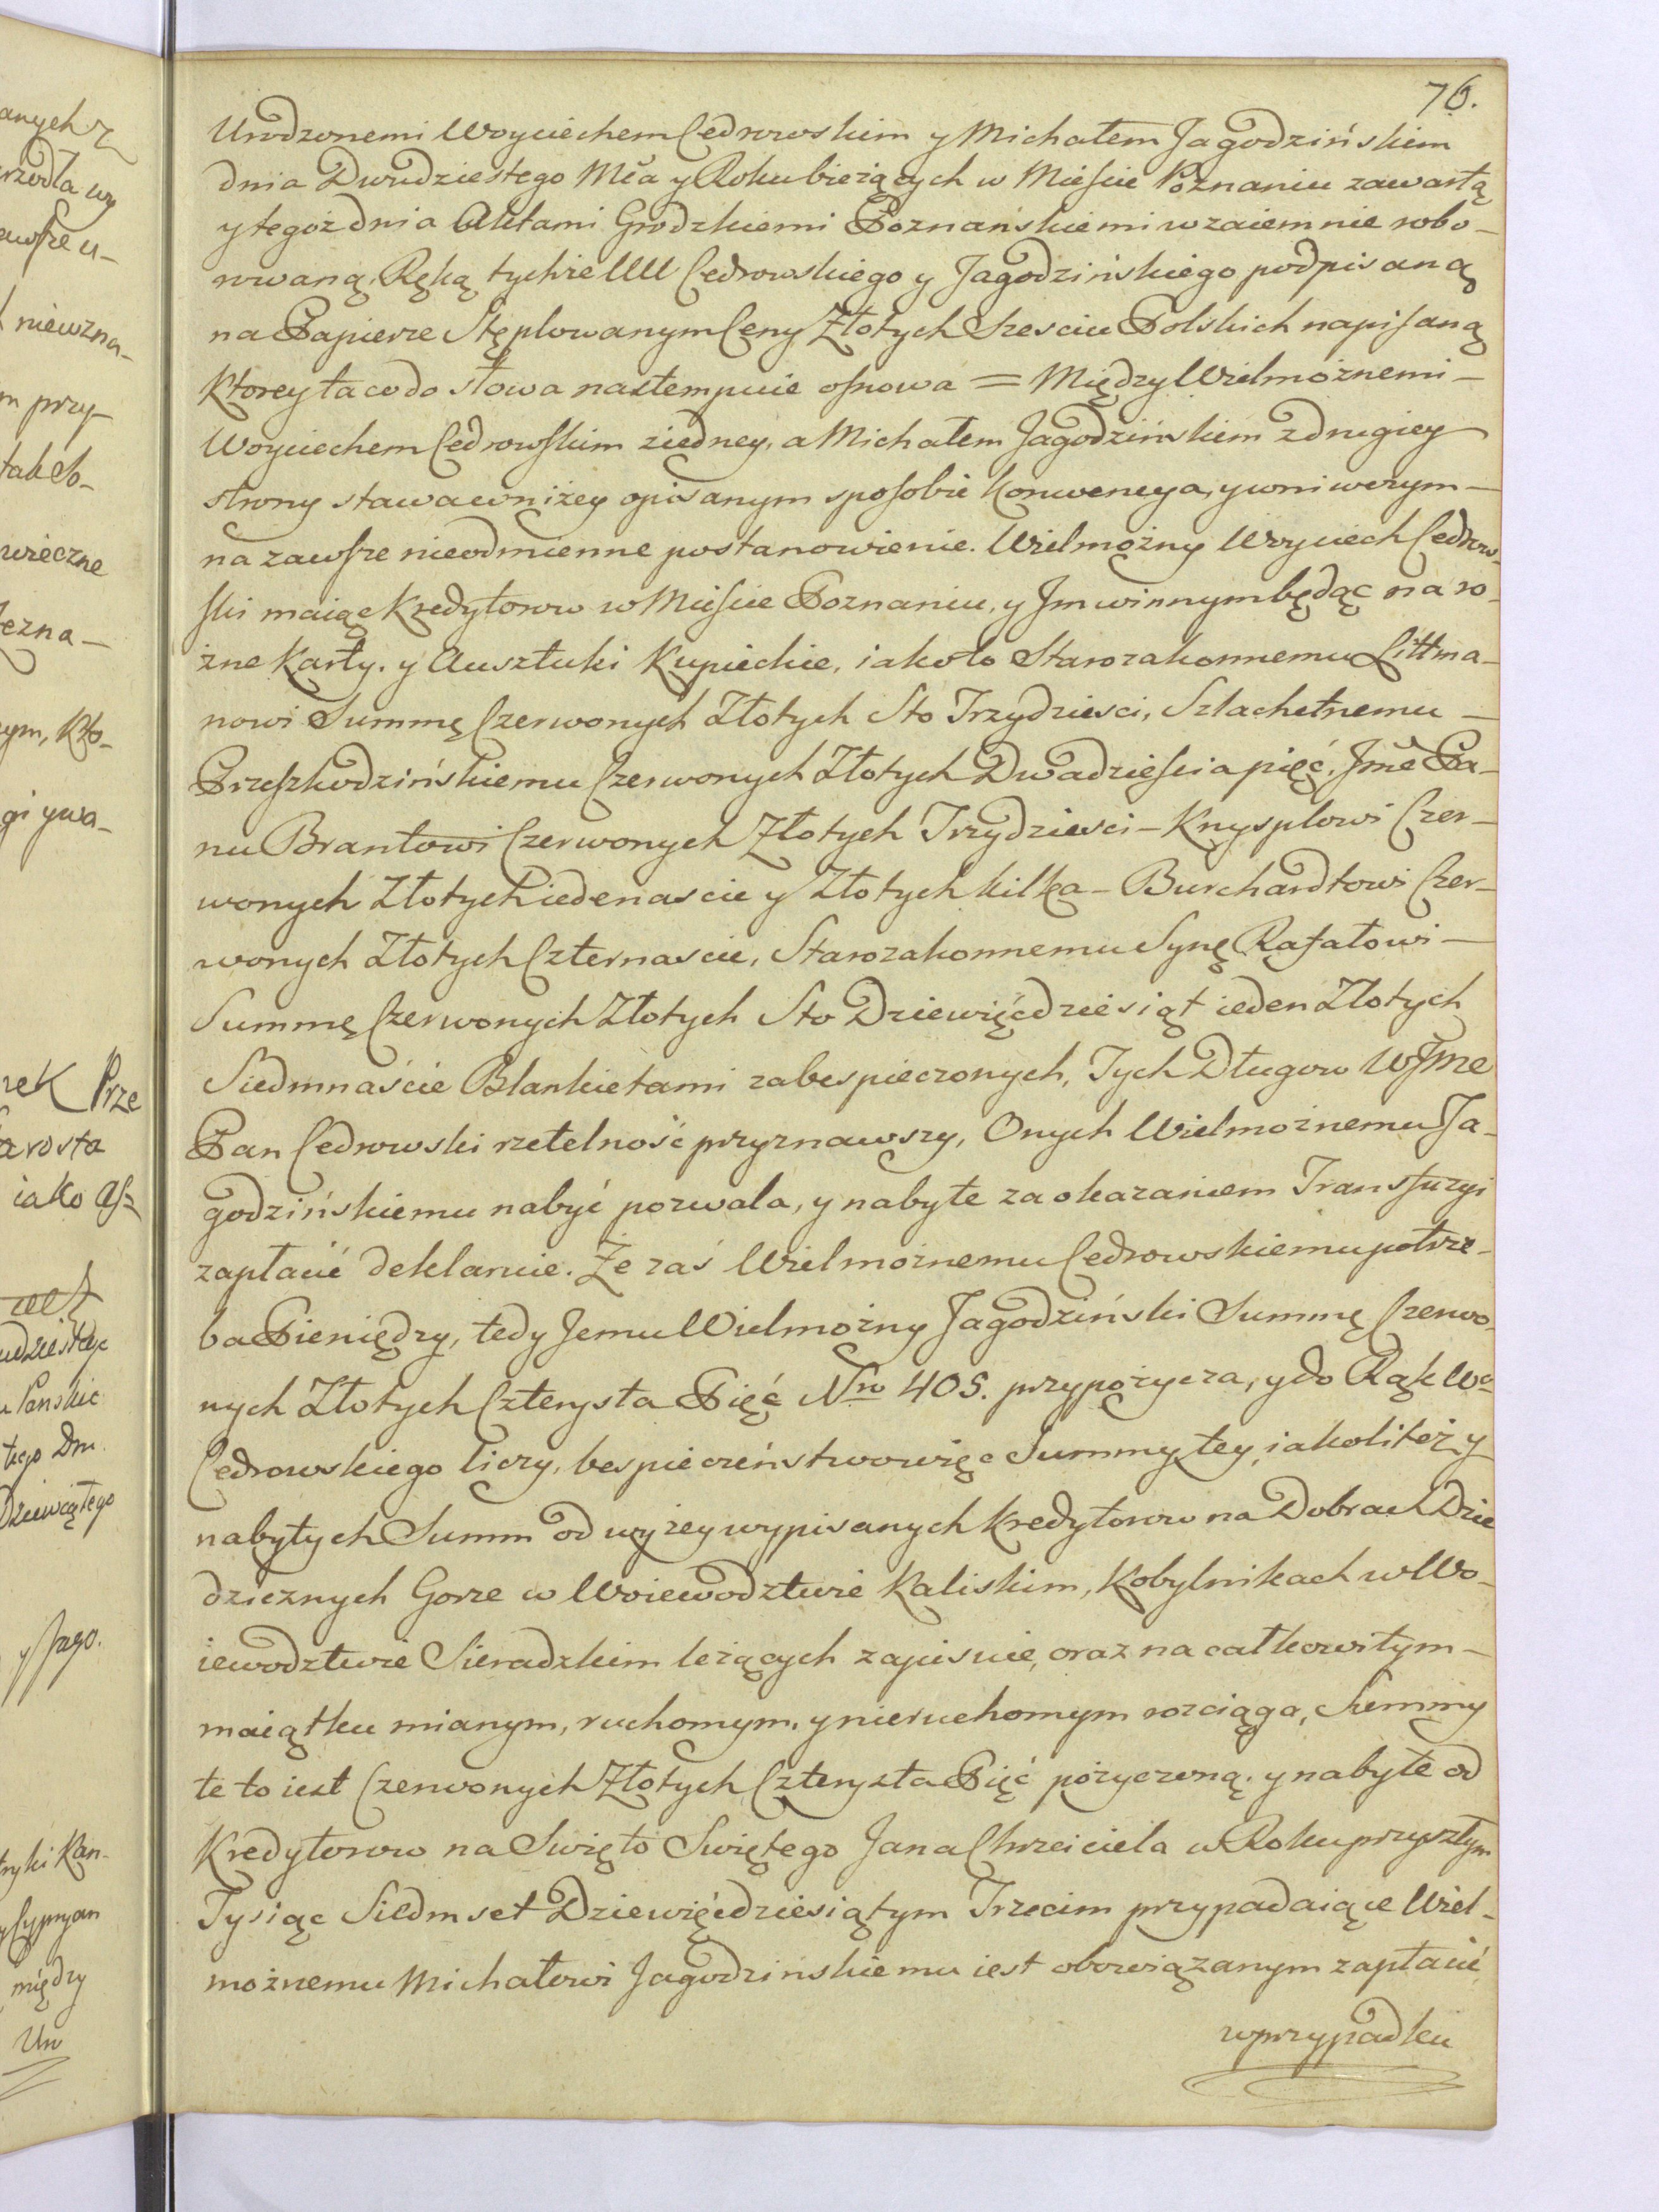 76.
Urodzonemi Woyciechem Cedrowskim y Michałem Jagodzińskim
dnia Dwudziestego Mca y Roku bieżących w Mieście Poznaniu zawartą
y tegoż dnia Aktami Grodzkiemi Poznańskiemi wzaiemnie robo-
rowaną, Ręką tychże UU Cedrowskiego y Jagodzińskiego podpisaną
na Papierze Stęplowanym Ceny Złotych Sześciu Polskich napisaną
Ktorey ta co do słowa nastempuie osnowa = Między Wielmożnemi –
Woyciechem Cedrowskim z iedney, a Michałem Jagodzińskim z drugiey
strony stawa w niżey opisanym sposobie Konwencya, y w niwczym –
na zawsze nieodmienne postanowienie. Wielmożny Woyciech Cedrow-
ski maiąc Kredytorow w Mieście Poznaniu, y Jm winnym będąc na ro-
żne Karty. y Ausztuki Kupieckie, iako to Starozakonnemu Littma-
nowi Summę Czerwonych Złotych Sto Trzydziesci, Szlachetnemu –
Przeszkodzińskiemu Czerwonych Złotych Dwadziescia pięć, Jme Pa-
nu Brantowi Czerwonych Złotych Trzydziesci – Knysplowi Czer-
wonych Złotych iedenascie y Złotych kilka – Burchardtowi Czer-
wonych Złotych Czternascie, Starozakonnemu Synę Rafałowi –
Summę Czerwonych Złotych Sto Dziewięćdziesiąt ieden Złotych
Siedmnaście Blankietami zabespieczonych, Tych Długow WJme
Pan Cedrowski rzetelność przyznawszy, Onych Wielmożnemu Ja-
godzińskiemu nabyć pozwala, y nabyte za okazaniem Transfuzyi
zapłacić deklaruie. Że zaś Wielmożnemu Cedrowskiemu potrze-
ba Pieniędzy, tedy Jemu Wielmożny Jagodziński Summę Czerwo-
nych Złotych Czterysta Pięć Nro 405. przypożycza, y do Rąk Wo
Cedrowskiego liczy, bespieczeństwo więc Summy tey, iako li też y
nabytych Summ od wyżey wypisanych Kredytorow na Dobrach Dzie
dzicznych Gorze w Woiewodztwie Kaliskim, Kobylnikach w Wo-
iewodztwie Sieradzkim leżących zapisuie, oraz na całkowitym –
maiątku mianym, ruchomym, y nieruchomym rozciąga, Summy
te to iest Czerwonych Złotych Czterysta Pięć pożyczoną. y nabyte od
Kredytorow na Swięto Swiętego Jana Chrzciciela w Roku przyszłym
Tysiąc Siedmset Dziewięćdziesiątym Trzecim przypadaiące Wiel-
możnemu Michałowi Jagodzińskiemu iest obowiązanym zapłacić
w przypadku